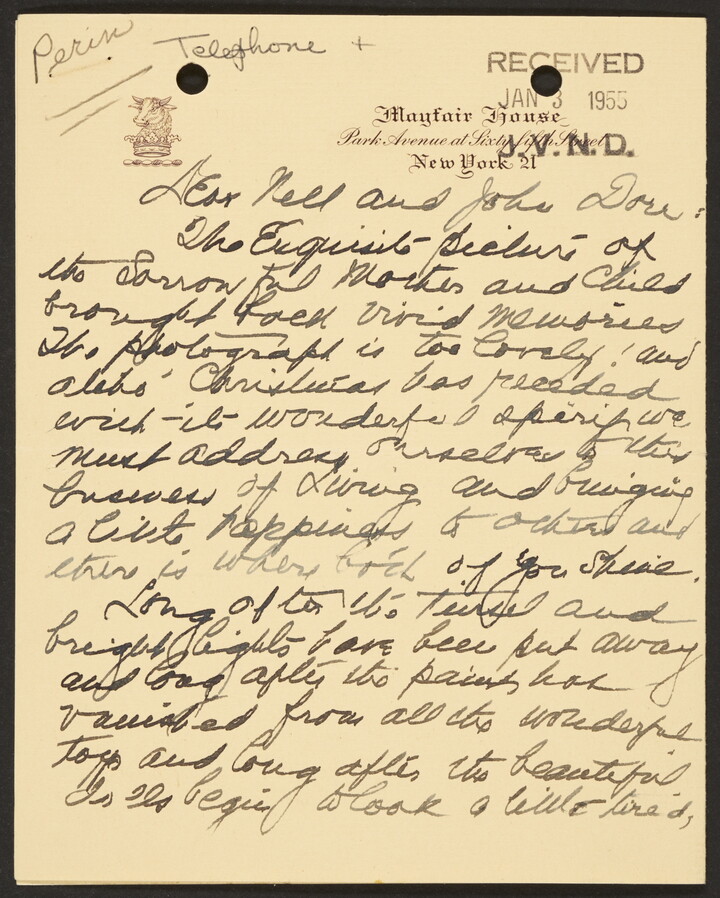 Perin Telephone +
RECEIVED
JAN 3 1955
J.V.N.D.
Mayfair House
Park Avenue at Sixty-fifth Street
New York 21
Dear Nell and John Dore:
The Exquisite picture of
the Sorrowful Mother and Child
brought back vivid memories
The photograph is too lovely! and
altho' Christmas has receeded
with its wonderful spirit, we
must address ourselves to this
business of Living and bringing
a little happiness to others and
there is where both of you shine.
Long after the Tinsel and
bright lights have been put away
and long after the paint has
vanished from all the wonderful
toys and long after the beautiful
begin to look a little tired,